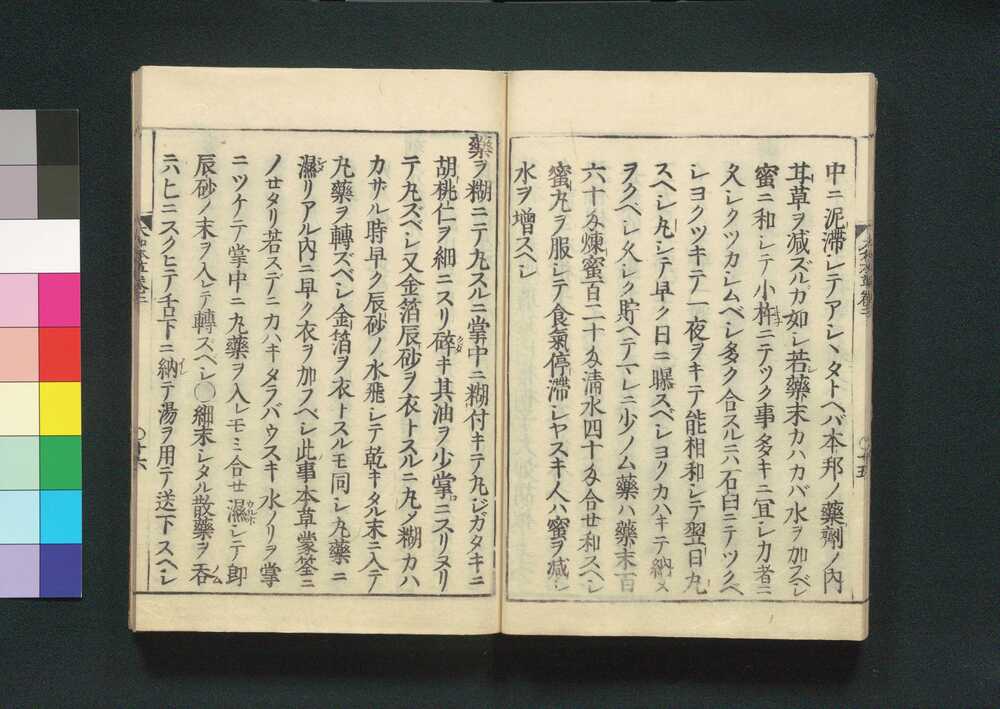 中ニ泥滞シテアシヽタトヘバ本邦ノ藥劑ノ内
甘草ヲ减ズルカ如シ若藥末カハカバ水ヲ加フベシ
蜜ニ和シテ小杵ニテツク事多キニ冝シ力者ニ
久シクツカシムベシ多ク合スルニハ石臼ニテツクベ
シヨクツキテ一夜ヲキテ能相和シテ翌日丸
スベシ丸シテ早ク日ニ曝スベシヨクカハキテ納メ
ヲクベシ久シク貯ヘテマレニ少ノム藥ハ藥末百
六十匁煉蜜百二十匁清水四十匁合せ和スベシ
蜜丸ヲ服シテ食氣停滯シヤスキ人ハ蜜ヲ减シ
水ヲ增スベシ
藥ヲ糊ニテ丸スルニ掌中ニ糊付キテ丸ジガタキニ
胡桃仁ヲ細ニスリ碎キ其油ヲ少掌ニスリヌリ
テ丸ズベシ又金箔辰砂ヲ衣トスルニ丸メ糊カハ
カザル時早ク辰砂ノ水飛シテ乾キタル末ニ入テ
丸藥ヲ轉ズベシ金箔ヲ衣トスルモ同シ丸藥ニ
濕リアル内ニ早ク衣ヲ加フベシ此事本草蒙筌ニ
ノセタリ若スデニカハキタラバウスキ水ノリヲ掌
ニツケテ掌中ニ丸藥ヲ入レモミ合せ濕シテ即
辰砂ノ末ヲ入レテ轉スベシ〇細末シタル散藥ヲ呑
ニハヒニスクヒテ舌下ニ納テ湯ヲ用テ送下スベシ